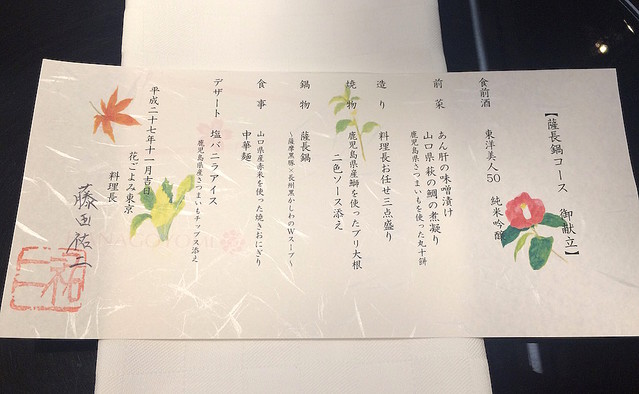 【薩長鍋コース 御献立】
食前酒 東洋美人50 純米吟醸
前菜 あん肝の味噌漬け
山口県萩の鯛の煮凝り
鹿児島県さつまいもを使った丸十餅
造り 料理長お任せ三点盛り
焼物 鹿児島県産鰤を使ったブリ大根
二色ソース添え
鍋物 薩長鍋
~薩摩黒豚×長州黒かしわのWスープ~
食事 中華麺
山口県産赤米を使った焼きおにぎり
デザート 塩バニラアイス
鹿児島県産さつまいもチップス添え
平成二十七年十一月吉日
花ごよみ東京
料理長
藤田祐二